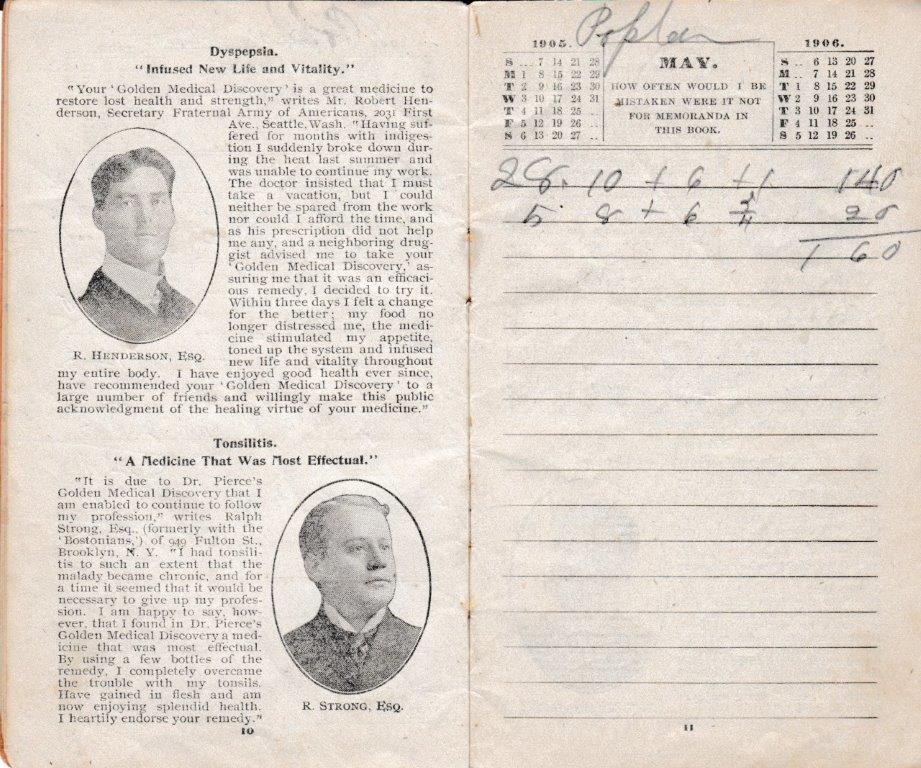 Dyspepsia.
"Infused New Life and Vitality."
"Your 'Golden Medical Discovery' is a great medicine to
restore lost health and strength," writes Mr. Robert Hen-
derson, Secretary Fraternal Army of Americans, 2031 First
Ave., Seattle, Wash. "Having suf-
fered for months with indiges-
tion I suddenly broke down dur-
ing the heat last summer and
was unable to continue my work.
The doctor insisted that I must
take a vacation, but I could
neither be spared from the work
nor could I afford the time, and
as his prescription did not help
me any, and a neighboring drug-
gist advised me to take your
'Golden Medical Discovery,' as-
suring me that it was an efficaci-
ous remedy, I decided to try it.
Within three days I felt a change
for the better; my food no
longer distressed me, the medi-
cine stimulated my appetite,
toned up the system and infused
new life and vitality throughout
my entire body. I have enjoyed good health ever since,
have recommended your 'Golden Medical Discovery' to a
large number of friends and willingly make this public
acknowledgment of the healing virtue of your medicine."
R. HENDERSON, ESQ.
Tonsilitis.
"A Medicine That Was Most Effectual."
"It is due to Dr. Pierce's
Golden Medical Discovery that I
am enabled to continue to follow
my profession," writes Ralph
Strong, Esq., (formerly with the
'Bostonians,') of 949 Fulton St.,
Brooklyn, N. Y. "I had tonsili-
tis to such an extent that the
malady became chronic, and for
a time it seemed that it would be
necessary to give up my profes-
sion. I am happy to say, how-
ever, that I found in Dr. Pierce's
Golden Medical Discovery a med-
icine that was most effectual.
By using a few bottles of the
remedy, I completely overcame
the trouble with my tonsils.
Have gained in flesh and am
now enjoying splendid health.
I heartily endorse your remedy."
R. STRONG, ESQ.
10
1905.
S .. 7 14 21 28
M 1 8 15 22 29
T 2 9 16 23 30
W 3 10 17 24 31
T 4 11 18 25 ..
F 5 12 19 26 ..
S 6 13 20 27 ..
MAY.
HOW OFTEN WOULD I BE
MISTAKEN WERE IT NOT
FOR MEMORANDA IN
THIS BOOK.
1906.
S .. 6 13 20 27
M .. 7 14 21 28
T 1 8 15 22 29
W 2 9 16 23 30
T 3 10 17 24 31
F 4 11 18 25 ..
S 5 12 19 26 ..
28. 10 + 6 + 1 140
5. 8 + 6 20
160
11